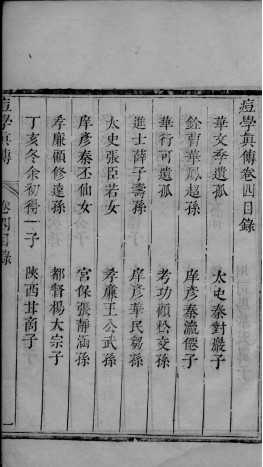 痘學真傳卷四目錄
華文季遺孤　太史秦對巖子
銓曹華鳳超孫　庠彥秦㵎僊子
華行可遺孤　考功顧松交孫
進士薛子壽孫　庠彥華民芻孫
太史張臣若女　孝廉王公武孫
庠彥秦丕仙女　宮保張靜涵孫
孝廉顧修遠孫　都督楊大宗子
丁亥冬余初得一子　陝西甘商子
痘學真傳　卷四目錄　一